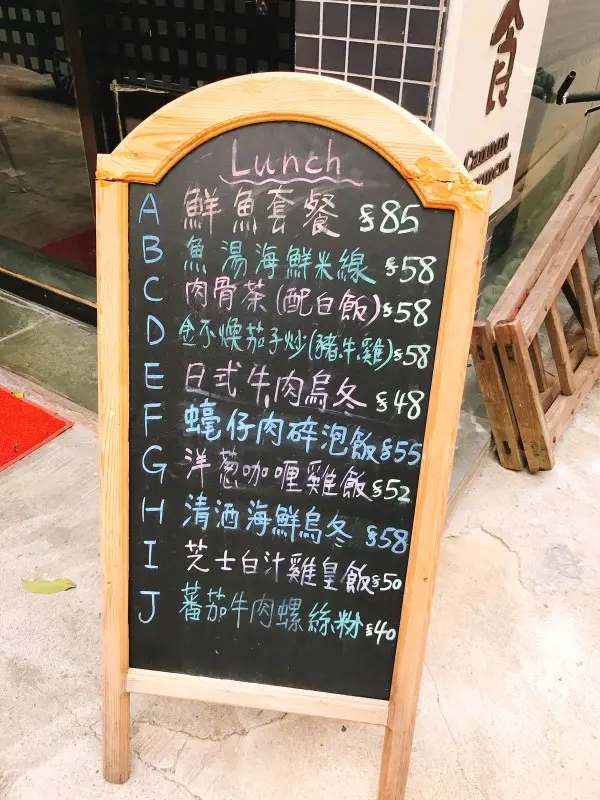 Lunch
A 鮮魚套餐 $85
B 魚湯海鮮米線 $58
C 肉骨茶(配白飯) $58
D 金不煥茄子炒(豬牛雞) $58
E 日式牛肉烏冬 $48
F 蠔仔肉碎泡飯 $55
G 洋葱咖喱雞飯 $52
H 清酒海鮮烏冬 $58
I 芝士白汁雞皇飯 $50
J 蕃茄牛肉螺絲粉 $40
食